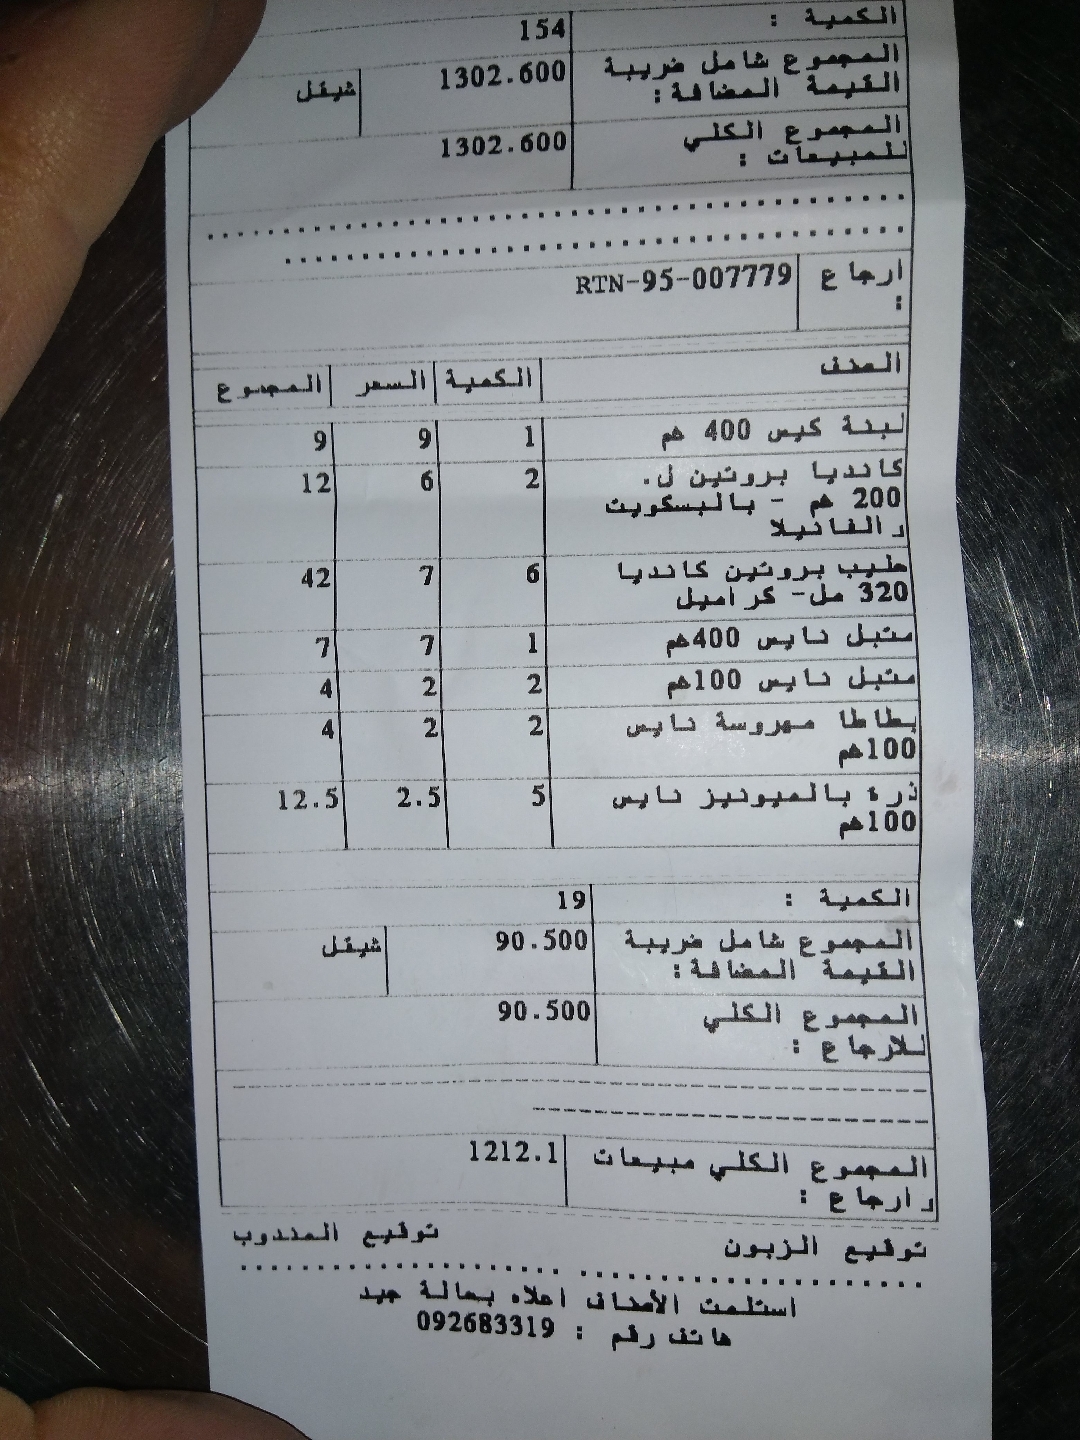 الكمية : 154
المجموع شامل ضريبة 1302.600 شيقل
القيمة المضافة :
المجموع الكلي 1302.600
للمبيعات :
ارجاع RTN-95-007779
:
الصنف الكمية السعر المجموع
لبنة كيس 400 غم 1 9 9
كانديا بروتين ل. 2 6 12
200 غم - بالبسكويت
و الفانيلا
حليب بروتين كانديا 6 7 42
320 مل- كراميل
متبل نايس 400غم 1 7 7
متبل نايس 100غم 2 2 4
بطاطا مهروسة نايس 2 2 4
100غم
ذرة بالميونيز نايس 5 2.5 12.5
100غم
الكمية : 19
المجموع شامل ضريبة 90.500 شيقل
القيمة المضافة :
المجموع الكلي 90.500
للارجاع :
المجموع الكلي مبيعات 1212.1
و ارجاع :
توقيع الزبون توقيع المندوب
استلمت الأصناف اعلاه بحالة جيد
هاتف رقم : 092683319